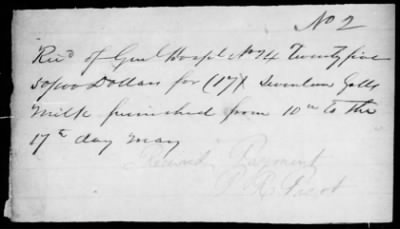 No 2
Recd of Genl Hospl No 24 Twenty five
50/100 Dollars for (17) Seventeen Galls
Milk furnished from 10th to the
17th day May
Received Payment
P R Picot